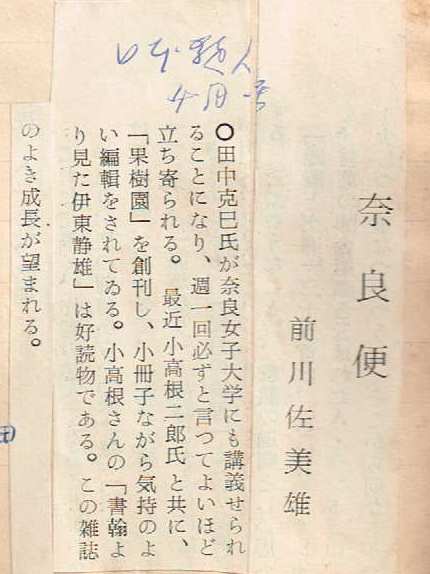 日本歌人
4月号
奈良便
前川佐美雄
〇田中克巳氏が奈良女子大学にも講義せられ
ることになり、週一回必ずと言つてよいほど
立ち寄られる。最近小高根二郎氏と共に、
「果樹園」を創刊し、小冊子ながら気持のよ
い編輯をされてゐる。小高根さんの「書翰よ
り見た伊東静雄」は好読物である。この雑誌
のよき成長が望まれる。